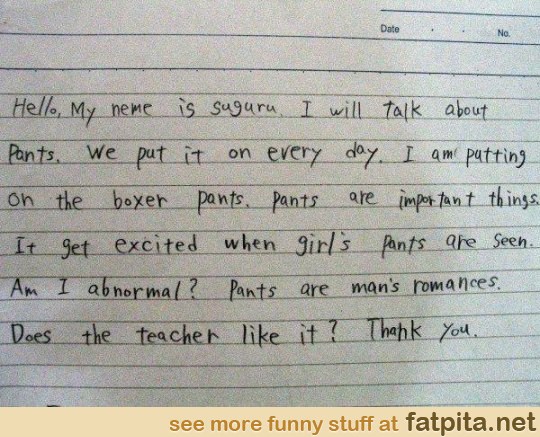 Date . . No.
Hello, My neme is suguru. I will talk about
Pants. We put it on every day. I am putting
on the boxer pants. pants are important things.
It get excited when girl's pants are seen.
Am I abnormal? Pants are man's romances.
Does the teacher like it? Thank you.
see more funny stuff at fatpita.net